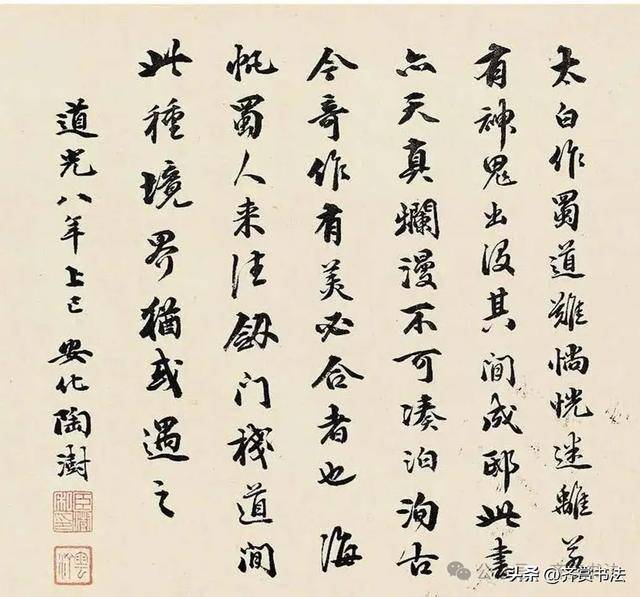 太白作蜀道難惝恍迷離若
有神鬼出没其間成邸此書
亦天真爛漫不可凑泊洵古
今奇作有美必合者也海
帆蜀人来往劔门棧道間
此種境界猶或遇之
道光八年上巳安化陶澍
头条@齐赏书法